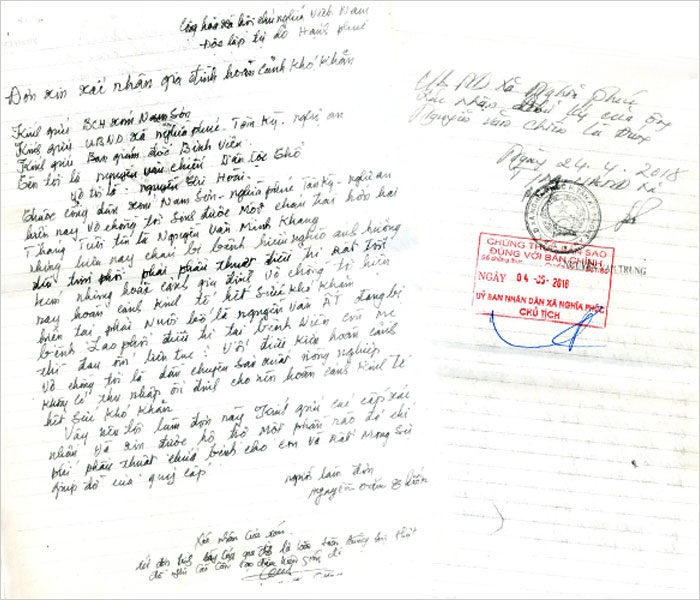 Cộng hòa xã hội chủ nghĩa Việt Nam
- Độc lập tự do Hạnh phúc
Đơn xin xác nhận gia đình hoàn cảnh khó khăn
Kính gửi BCH xóm Nam Sơn
Kính gửi UBND xã nghĩa phúc - Tân Kỳ - nghệ an
Kính gửi Ban giám đốc Bệnh Viện
Tên tôi là nguyễn văn chiến Dân tộc thổ
Vợ tôi là: nguyễn thị Hoài
thuộc công dân xóm Nam Sơn - nghĩa phúc Tân Kỳ - nghệ an
hiện nay Vợ chồng tôi Sinh được Một cháu trai hơn hai
Tháng Tuổi tên là Nguyễn Văn Minh Khang
nhưng hiện nay cháu bị bệnh hiểm nghèo ảnh hưởng
đến tim phổi phải phẫu thuật điều trị Rất tốn
kém nhưng hoàn cảnh gia đình Vợ chồng tôi hiện
nay hoàn cảnh kinh tế hết Sức Khó Khăn
hiện tại phải Nuôi bố là nguyễn văn đang bị
bệnh Lao phổi điều trị tại bệnh Viện còn Mẹ
thì đau ốm liên tục: Với điều kiện hoàn cảnh
Vợ chồng tôi là dân chuyên Sản xuất nông nghiệp
không có thu nhập ổn định cho nên hoàn cảnh Kinh tế
hết Sức Khó Khăn
Vậy nên tôi làm đơn này Kính gửi các cấp xác
nhận Và xin được hỗ trợ Một phần nào đó chi
phí phẫu thuật chữa bệnh cho con Và Rất Mong Sự
giúp đỡ của quý cấp
người làm đơn
nguyễn văn chiến
Xác nhận của xóm
UBND xã Nghĩa phúc
Xác nhận
Nguyễn văn chiến là
Ngày 24.4.2018
CHỨNG THỰC BẢN SAO
ĐÚNG VỚI BẢN CHÍNH
Số chứng thực
TRUNG
NGÀY 04 -05- 2018
UỶ BAN NHÂN DÂN XÃ NGHĨA PHÚC
CHỦ TỊCH